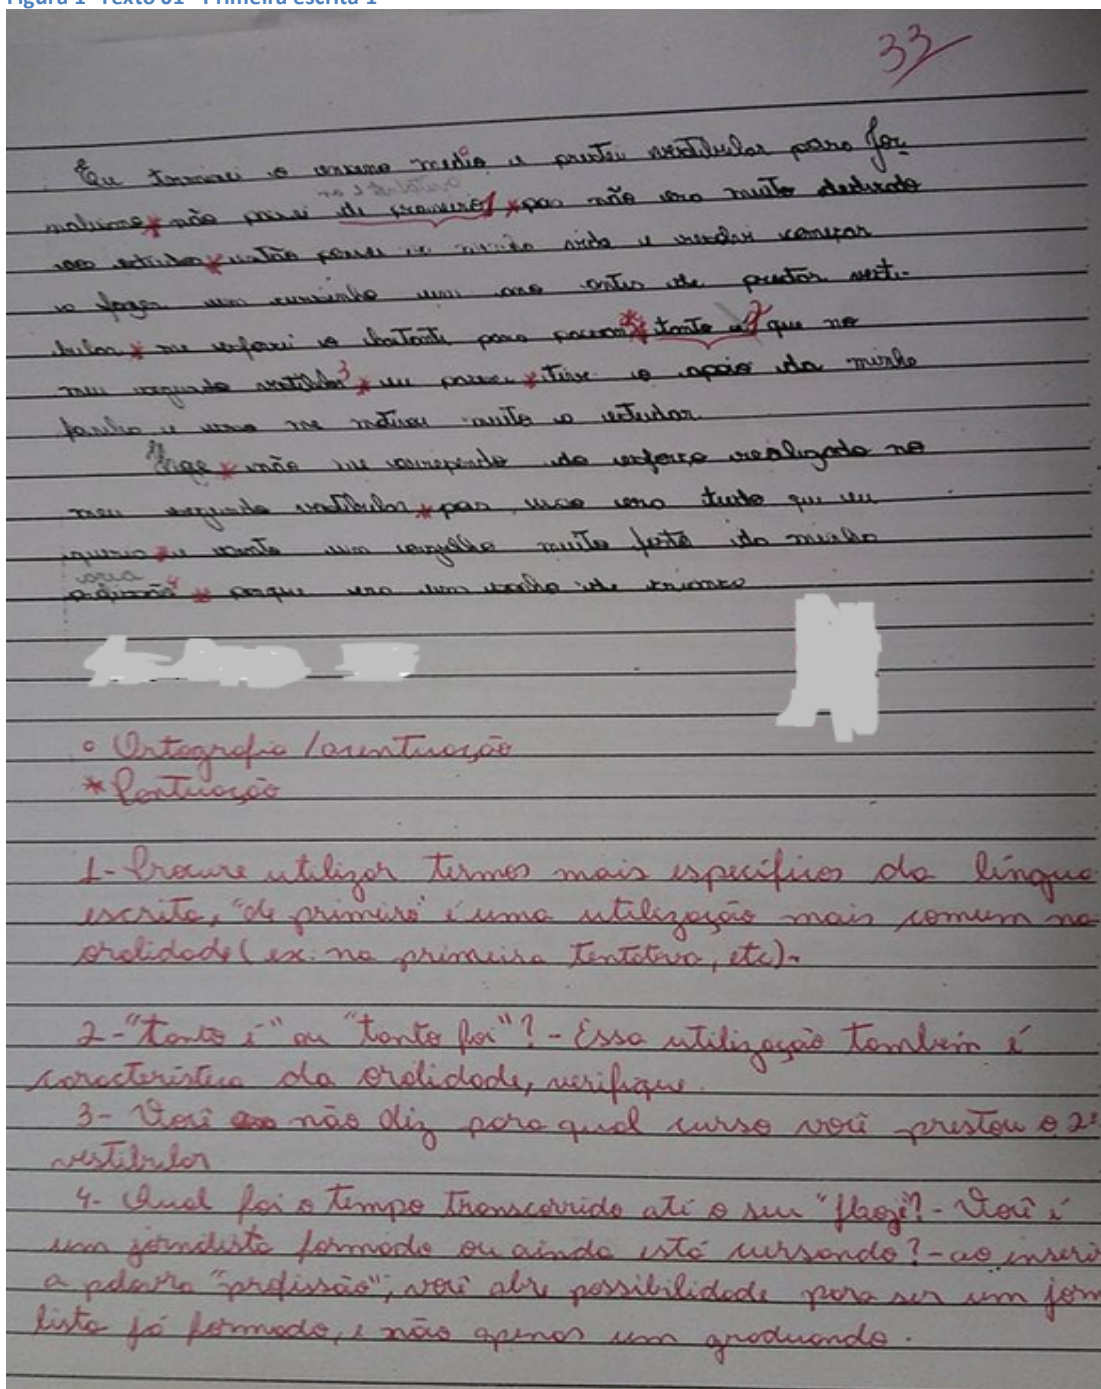 Figura 1 - Texto 01 - Primeira escrita 1
33
Eu terminei o ensino medio e prestei vestibular para jor-
nalismo * não passei de primeiro 1 * pas não era muito dedicado
aos estudos * então pensei na minha vida e resolvi começar
a fazer um cursinho um ano antes de prestar vesti-
bular * me esforcei o bastante para passar * tanto é 2 que no
meu segundo vestibular 3 * eu passei * tive o apoio da minha
familia e isso me motivou muito a estudar.
Hoje * não me arrependo do esforço realizado no
meu segundo vestibular * pas isso era tudo que eu
queria * e sinto um orgulho muito forte da minha
profissão 4 * porque era um sonho de criança
° Ortografia / acentuação
* Pontuação
1- Procure utilizar termos mais específicos da língua
escrita, "de primeiro" é uma utilização mais comum na
oralidade (ex: na primeira tentativa, etc).
2- "Tanto é" ou "tanto foi"? - Essa utilização também é
característica da oralidade, verifique.
3- Você não diz para qual curso você prestou o 2º
vestibular
4- Qual foi o tempo transcorrido até o seu "hoje"? - Você é
um jornalista formado ou ainda está cursando? - ao inseri
a palavra "profissão", você abre possibilidade para ser um jorn
lista já formado, e não apenas um graduando.